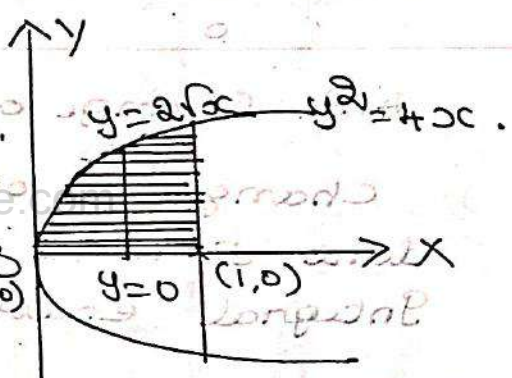 Y
y=2√x
y²=4x.
X
y=0
(1,0)
0)